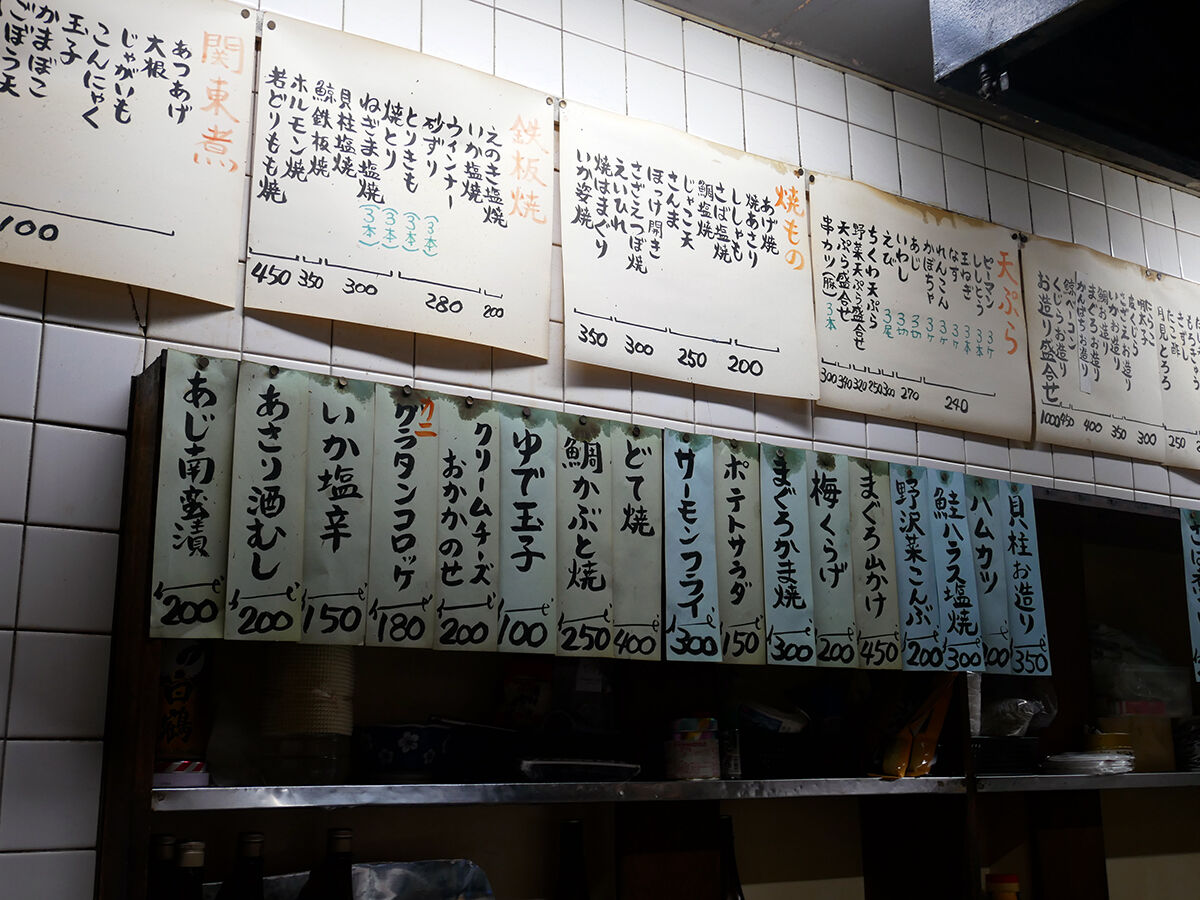 関東煮
あつあげ
大根
じゃがいも
こんにゃく
玉子
かまぼこ
ごぼう天
100
鉄板焼
えのき塩焼
いか塩焼
ウィンナー
砂ずり(3本)
とりきも(3本)
焼とり(3本)
ねぎま塩焼(3本)
貝柱塩焼
鯨鉄板焼
ホルモン焼
若どりもも焼
450 350 300 280 200
焼もの
あげ焼
焼あさり
ししゃも
さば塩焼
鯛塩焼
じゃこ天
さんま
ほっけ開き
さざえつぼ焼
えいひれ
焼はまぐり
いか姿焼
350 300 250 200
天ぷら
ピーマン 3ケ
ししとう 3本
玉ねぎ 3本
れんこん 3ケ
なす 3ケ
かぼちゃ 3切
あじ
いわし 3切
えび 3尾
ちくわ天ぷら
野菜天ぷら盛合せ
天ぷら盛合せ
串カツ(豚)3本
300 390 320 250 300 270 240
きずし
たこ酢
月見とろろ
明太子
皮くじら
さざえお造り
いかお造り
鯛お造り
まぐろお造り
かんぱちお造り
鯨ベーコン
くじらお造り
お造り盛合せ
1000 450 400 350 300 250
あじ南蛮漬 200
あさり酒むし 200
いか塩辛 150
カニグラタンコロッケ 180
クリームチーズおかかのせ 200
ゆで玉子 100
鯛かぶと焼 250
どて焼 400
サーモンフライ 300
ポテトサラダ 150
まぐろかま焼 300
梅くらげ 200
まぐろ山かけ 450
野沢菜こんぶ 200
鮭ハラス塩焼 300
ハムカツ
貝柱お造り 350
白鶴